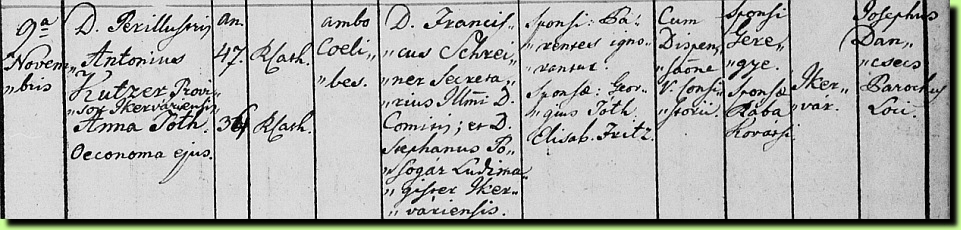 9a
Novem„
„bris
D. Perillustris
Antonius
Kutzer Provi„
sor Ikervariensis
Anna Toth.
Oeconoma ejus.
an.
47.
36
RCath.
RCath.
ambo
Coeli„
„bes.
D. Francis„
„cus Schrei„
„ner Secreta„
„rius Illmi D.
Comitis; et D.
Stephanus Po„
„sogár Ludima„
„gister Iker„
„váriensis.
Sponsi: Pa„
„rentes igno„
„rantur.
Sponsae: Geor„
„gius Toth.
Elisab. Fritz.
Cum
Dispen„
„saõne
V. Consis„
„storii.
Sponsi
Gere„
„gye.
Sponsae
Raba
Kovatsi.
Iker„
var.
Josephus
Dan„
„csecs
Parochus
Loci.